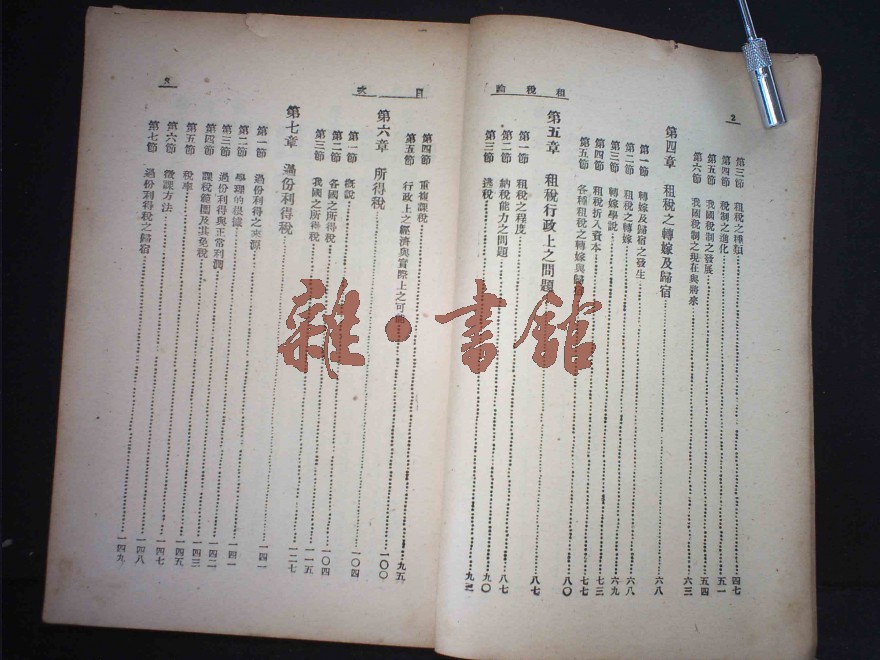 租稅論
2
第三節 租稅之種類……四七
第四節 稅制之進化……五一
第五節 我國稅制之發展……五四
第六節 我國稅制之現在與將來……六三
第四章 租稅之轉嫁及歸宿……六八
第一節 轉嫁及歸宿之發生……六八
第二節 租稅之轉嫁……六九
第三節 轉嫁學說……七三
第四節 租稅折入資本……七七
第五節 各種租稅之轉嫁與歸……八〇
第五章 租稅行政上之問題……八七
第一節 租稅之程度……八七
第二節 納稅能力之問題……九〇
第三節 逃稅……九三
目次
3
第四節 重複課稅……九五
第五節 行政上之經濟與實際上之可……一〇〇
第六章 所得稅……一〇四
第一節 概說……一〇四
第二節 各國之所得稅……一一五
第三節 我國之所得稅……一二七
第七章 過份利得稅……一四一
第一節 過份利得之來源……一四一
第二節 學理的根據……一四二
第三節 過份利得與正常利潤……一四三
第四節 課稅範圍及其免稅……一四五
第五節 稅率……一四七
第六節 徵課方法……一四八
第七節 過份利得稅之歸宿……一四九
雜·書館